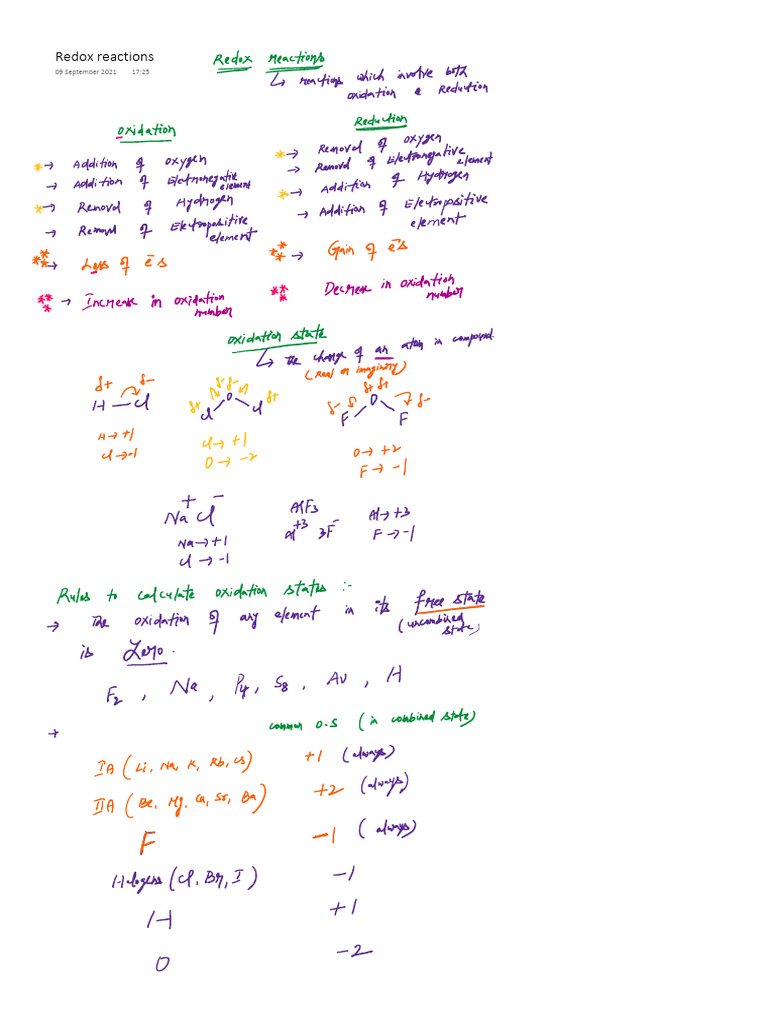 Redox reactions
09 September 2021 17:25
Redox reactions
↳ reactions which involve both
oxidation & Reduction
Oxidation
* → Addition of oxygen
→ Addition of Electronegative
element
* → Removal of Hydrogen
→ Removal of Electropositive
element
*** → Loss of e⁻s
*** → Increase in oxidation
number
Reduction
* → Removal of oxygen
→ Removal of Electronegative
element
* → Addition of Hydrogen
→ Addition of Electropositive
element
*** → Gain of e⁻s
*** Decrease in oxidation
number
Oxidation state
↳ the charge of an atom in compound.
(real or imaginary)
δ+ δ-
H — Cl
H → +1
Cl → -1
δ- δ-
δ+ O δ+
Cl Cl
Cl → +1
O → -2
δ+ δ+
δ- O δ-
F F
O → +2
F → -1
+ -
Na Cl
Na → +1
Cl → -1
AlF3
Al+3 3F-
Al → +3
F → -1
Rules to calculate oxidation states :-
→ The oxidation of any element in its free state
(uncombined
state)
is Zero.
F2 , Na , P4 , S8 , Au , H
→ common O.S (in combined state)
IA (Li, Na, K, Rb, Cs) +1 (always)
IIA (Be, Mg, Ca, Sr, Ba) +2 (always)
F -1 (always)
Halogens (Cl, Br, I) -1
H +1
O -2